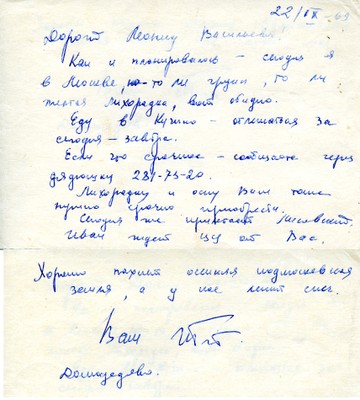 22/IX-69
Дорогой Леонид Васильевич!
Как и планировалось – сегодня я
в Москве, но то ли грипп, то ли
желтая лихорадка, вот обидно.
Еду в Кучино – отлежаться за
сегодня – завтра.
Если что срочное – сообщайте через
281-73-20.
Лихорадку и осу Вам тоже
нужно срочно приобрести.
Сегодня же прилетает
Иван ждет ЦУ от Вас.
Хорошо пахнет осенняя подмосковная
земля, а у нас летит снег.
Ваш
Домодедово.